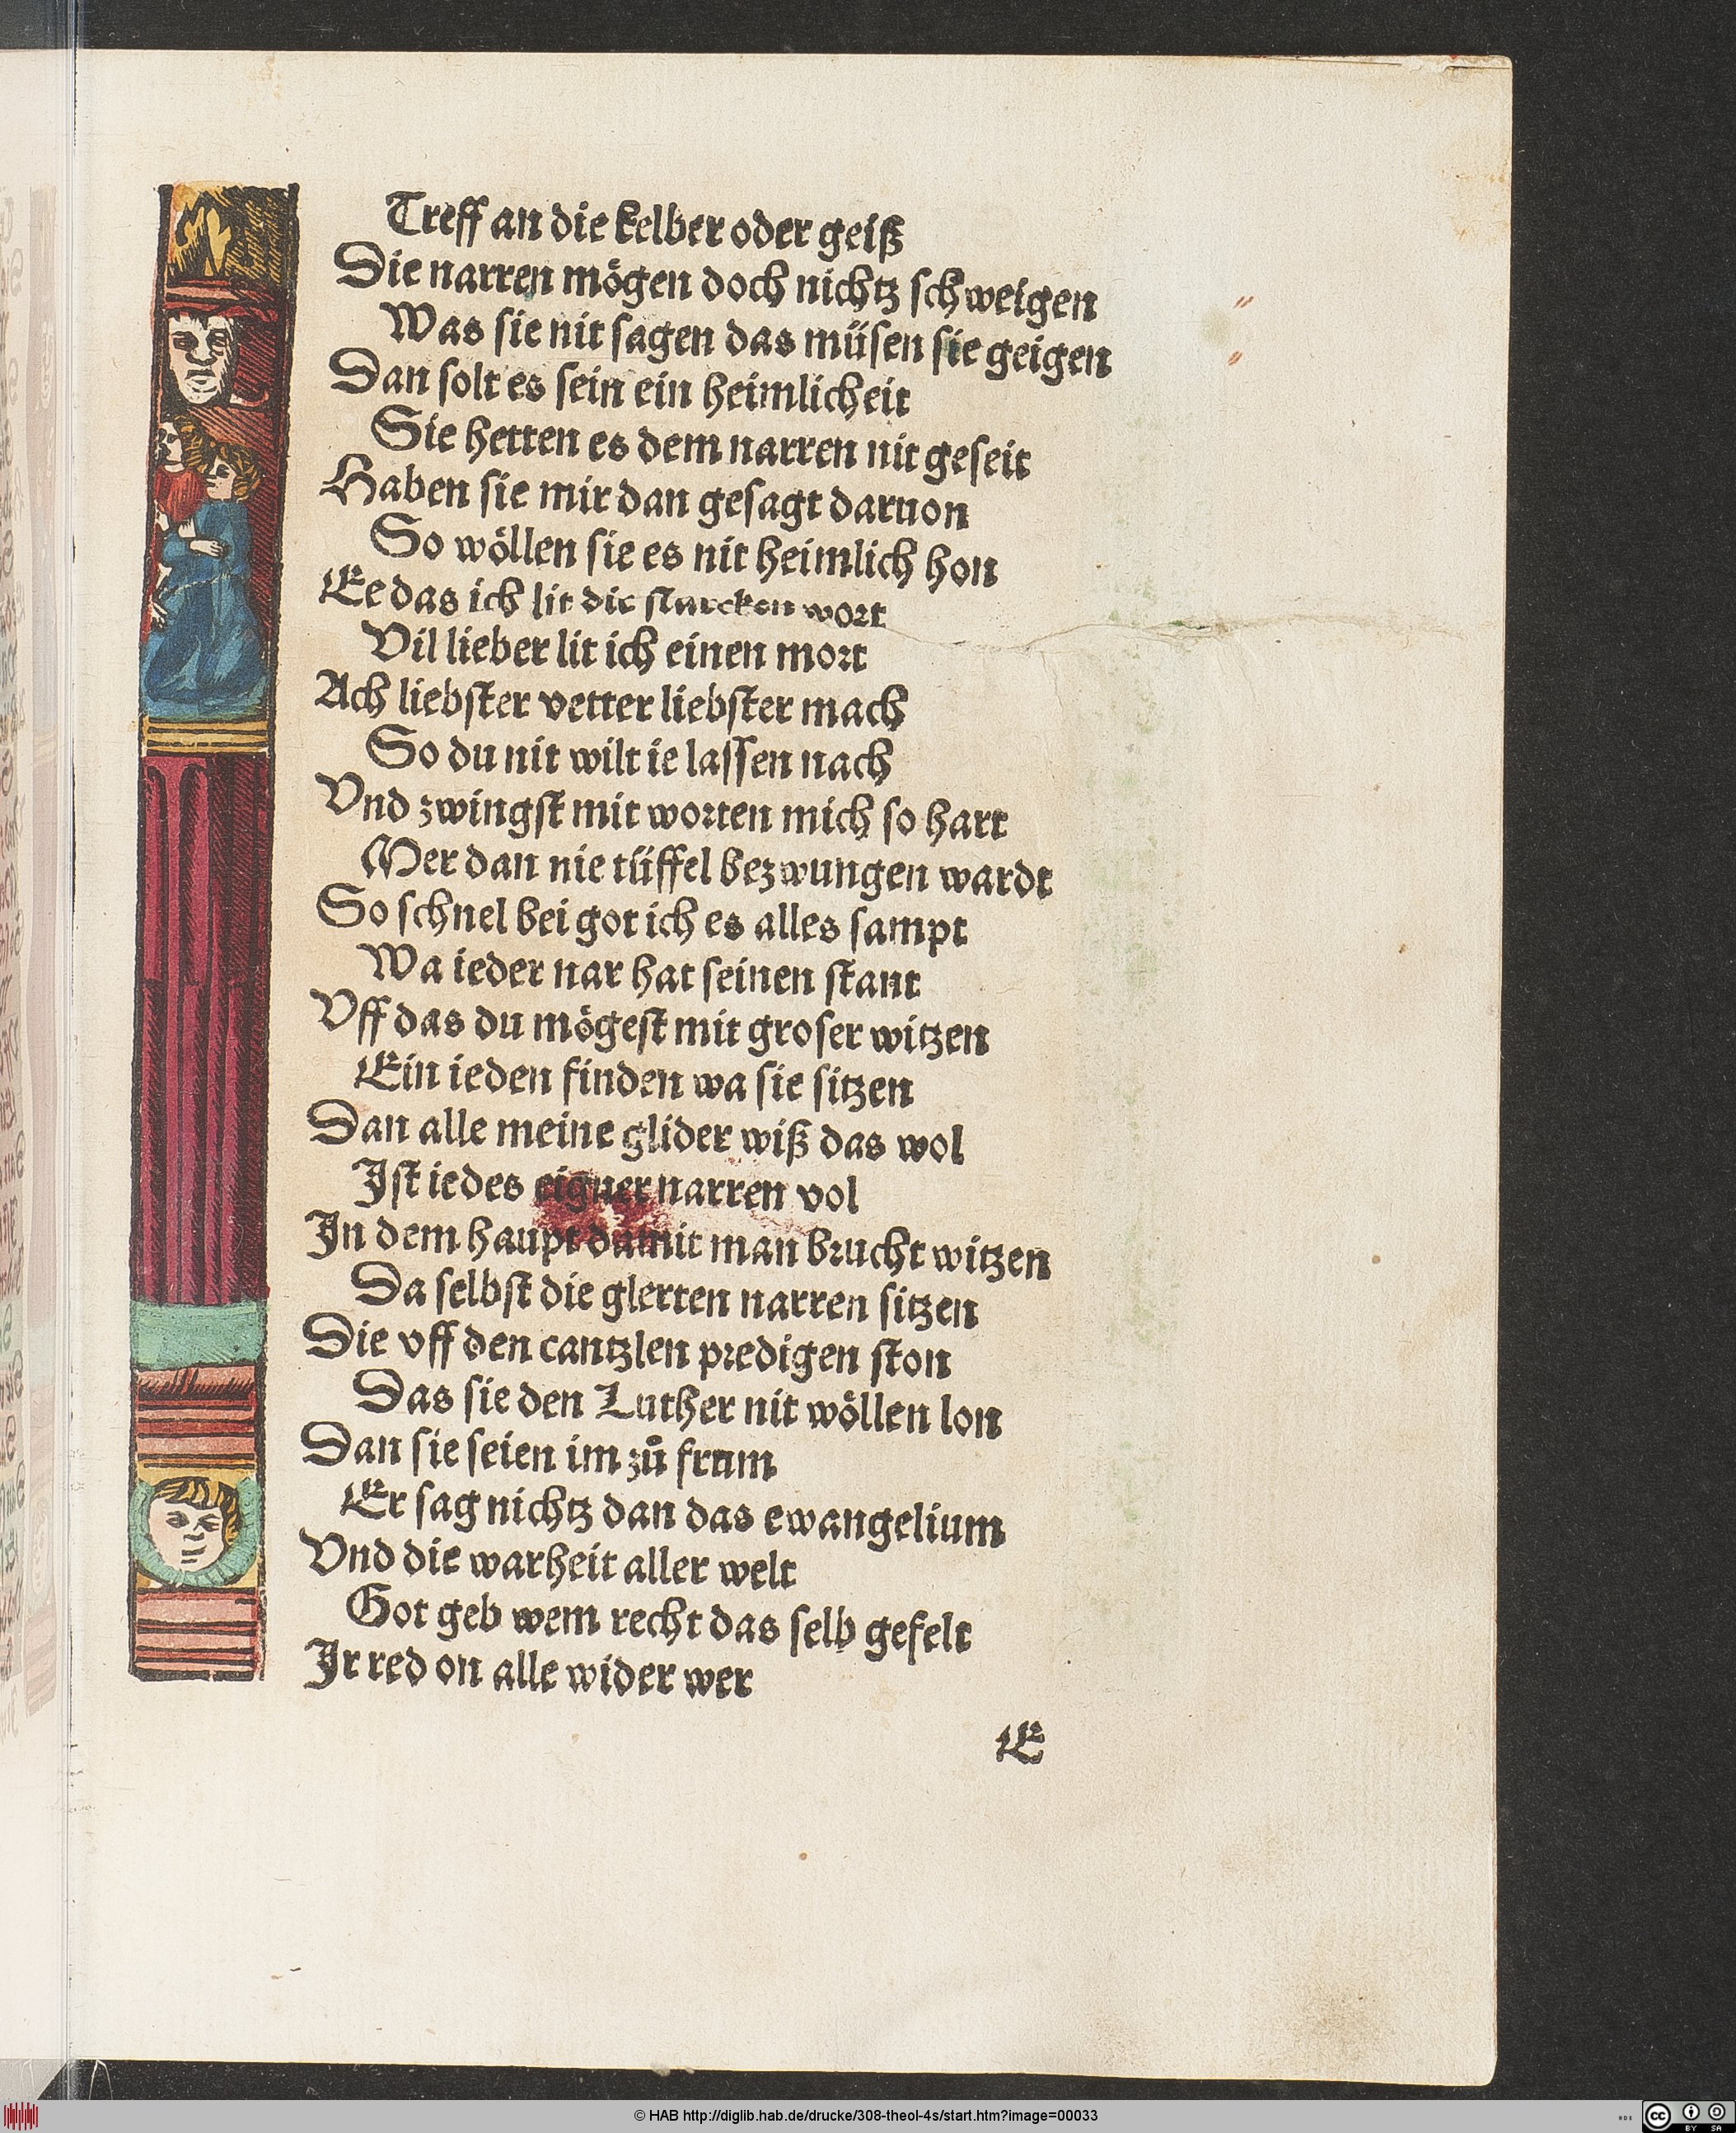 Treff an die kelber oder geiß
Die narren mögen doch nichtz schweigen
Was sie nit sagen das müsen sie geigen
Dan solt es sein ein heimlicheit
Sie hetten es dem narren nit geseit
Haben sie mir dan gesagt daruon
So wöllen sie es nit heimlich hon
Ee das ich lit die starcken wort
Vil lieber lit ich einen mort
Ach liebster vetter liebster mach
So du nit wilt ie lassen nach
Vnd zwingst mit worten mich so hart
Mer dan nie tüffel bezwungen wardt
So schnel bei got ich es alles sampt
Wa ieder nar hat seinen stant
Vff das du mögest mit groser witzen
Ein ieden finden wa sie sitzen
Dan alle meine glider wiß das wol
Ist iedes eigner narren vol
In dem haupt damit man brucht witzen
Da selbst die glerten narren sitzen
Die vff den cantzlen predigen ston
Das sie den Luther nit wöllen lon
Dan sie seien im zů frum
Er sag nichtz dan das ewangelium
Vnd die warheit aller welt
Got geb wem recht das selb gefelt
Ir red on alle wider wer
E
© HAB http://diglib.hab.de/drucke/308-theol-4s/start.htm?image=00033
cc BY SA